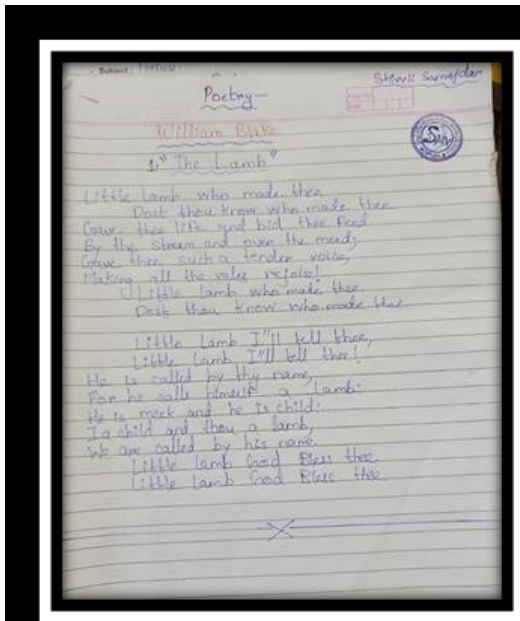 Subject :
Poetry—
William Blake
1. "The Lamb"
Little Lamb who made thee
Dost thou know who made thee
Gave thee life and bid thee feed.
By the stream and over the mead;
Gave thee such a tender voice,
Making all the vales rejoice!
Little Lamb who made thee
Dost thou know who made thee
Little Lamb I'll tell thee,
Little Lamb I'll tell thee!
He is called by thy name,
For he calls himself a Lamb:
He is meek and he is child:
I a child and thou a lamb,
We are called by his name
Little lamb God Bless thee
Little Lamb God Bless thee